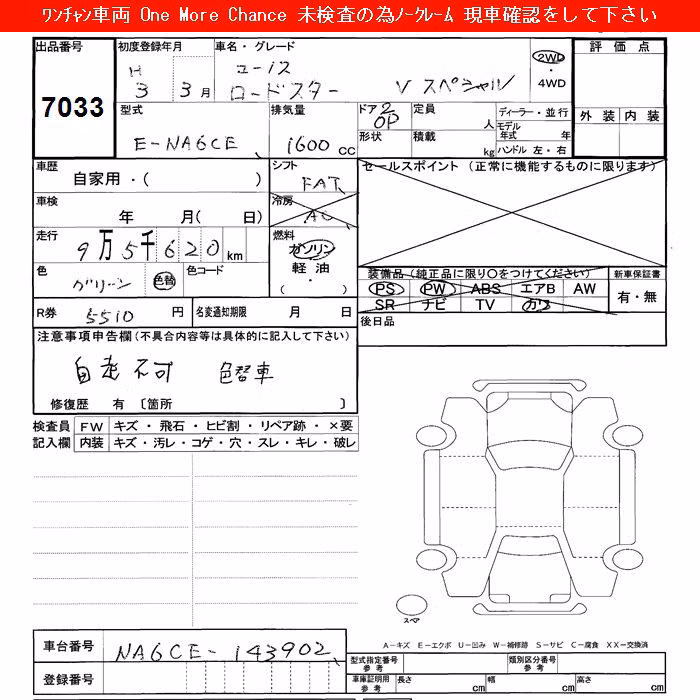 ﾜﾝﾁｬﾝ車両 One More Chance 未検査の為ﾉｰｸﾚｰﾑ 現車確認をして下さい
出品番号 初度登録年月 車名・グレード 評価点
H 3 3月 ユーノス ロードスター Vスペシャル 2WD・4WD
7033
型式 排気量 ドア 定員 ディーラー・並行 外装 内装
E-NA6CE 1600 cc 2 OP 人 モデル年式 年
形状 積載 kg ハンドル 左・右
車歴 シフト セールスポイント (正常に機能するものに限ります)
自家用・( ) FAT
車検 冷房
年 月( 日) AC
走行 燃料
9万5千620km ガソリン
軽油
( ・ )
色 色コード 装備品(純正品に限り○をつけてください) 新車保証書
グリーン 色替 PS PW ABS エアB AW 有・無
SR ナビ TV カワ
R券 5510 円 名変通知期限 月 日 後日品
注意事項申告欄(不具合内容等は具体的に記入して下さい)
自走不可 色替車
修復歴 有〔箇所 〕
検査員 FW キズ・飛石・ヒビ割・リペア跡・×要
記入欄 内装 キズ・汚レ・コゲ・穴・スレ・キレ・破レ
スペア
A-キズ E-エクボ U-凹み W-補修跡 S-サビ C-腐食 XX-交換済
車台番号 NA6CE-143902
型式指定番号 参考 類別区分番号 参考
登録番号 車庫証明用 参考 長さ cm 幅 cm 高さ cm